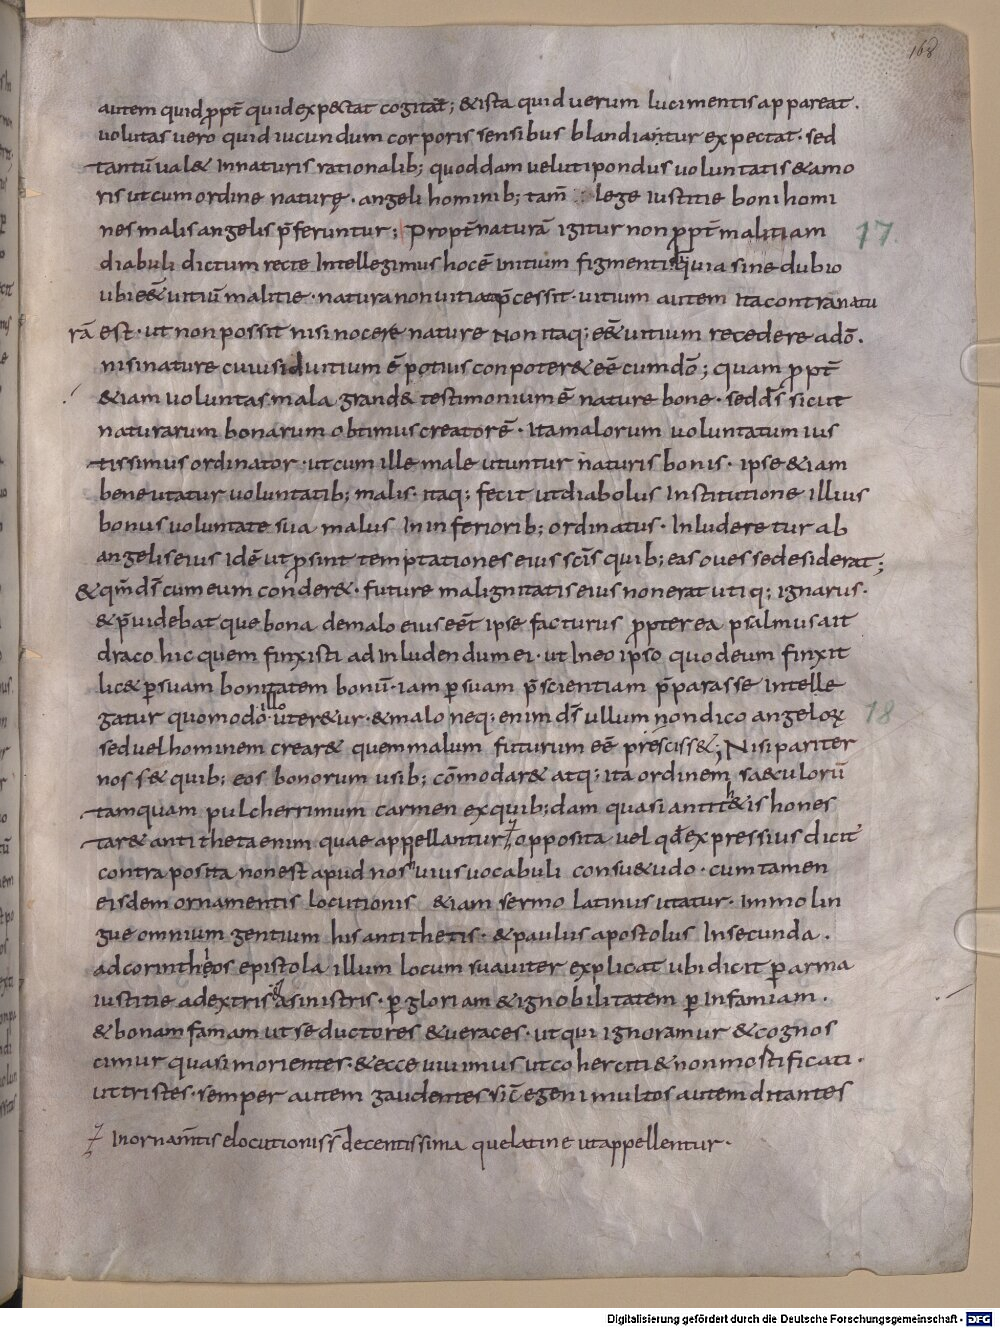 168
autem quid ꝓpt̄ quid expectat cogitat; & ista quid uerum luci mentis appareat.
uoluptas uero quid iucundum corporis sensibus blandiatur expectat· sed
tantū ual& In naturis rationalib; quoddam ueluti pondus uoluntatis & amo
ris ut cum ordine naturę· angeli hominib; tam̄ lege iustitie boni homi
nes malis angelis p̄feruntur; Propt̄ naturā igitur non ꝓpt̄ malitiam
17.
diabuli dictum recte Intellegimus hoc ē initium figmenti quia sine dubio
ubi eēt uitiū malitie· natura non uitiata p̄cessit· uitium autem ita contra natu
rā est· ut non possit nisi nocere nature Non itaq; eēt uitium recedere a dō·
nisi nature cuius id uitium ē potius conpoter& eē cum dō; quam ꝓpt̄
&iam uoluntas mala grande testimonium ē nature bone· sed d̄s sicut
naturarum bonarum obtimus creator ē· ita malorum uoluntatum ius
tissimus ordinator· ut cum ille male utuntur naturis bonis· ipse &iam
bene utatur uoluntatib; malis· itaq; fecit ut diabolus Institutione illius
bonus uoluntate sua malus In inferiorib; ordinatus· Inluderetur ab
angelis eius Idē ut ꝓsint temptationes eius sc̄is quib; eas oues se desiderat;
& qm̄ d̄s cum eum conder&· future malignitatis eius non erat utiq; ignarus·
& p̄uidebat que bona de malo eius eēt ipse facturus propterea psalmus ait
draco hic quem finxisti ad inludendum ei· ut In eo ipso quo deum finxit
lic& ꝑ suam bonitatem bonū· iam ꝑ suam p̄scientiam p̄parasse Intelle
gatur quomodo illo uter&ur· & malo neq; enim d̄s ullum non dico angeloꝝ
18
sed uel hominem crear& quem malum futurum eē presciss&; Nisi pariter
noss& quib; eos bonorum usib; cōmodar& atq; ita ordinem saeculorū
tamquam pulcherrimum carmen ex quib;dam quasi antith&is hones
tar& antitheta enim quae appellantur opposita uel qd̄ expressius dicit̄
contraposita non est apud nos huius uocabuli consu&udo· cum tamen
eisdem ornamentis locutionis &iam sermo latinus utatur· Immo lin
gue omnium gentium his antithetis· & paulus apostolus In secunda·
ad corintheos epistola illum locum suauiter explicat ubi dicit ꝑ arma
iustitie a dextris & a sinistris· ꝑ gloriam & ignobilitatem ꝑ Infamiam·
& bonam famam ut seductores & ueraces· ut qui ignoramur & cognos
cimur quasi morientes· & ecce uiuimus ut coherciti & non mortificati·
ut tristes· semper autem gaudentes sic̄ egeni multos autem ditantes
In ornam̄tis elocutionis s̄ decentissima que latine ut appellentur·
Digitalisierung gefördert durch die Deutsche Forschungsgemeinschaft - DFG